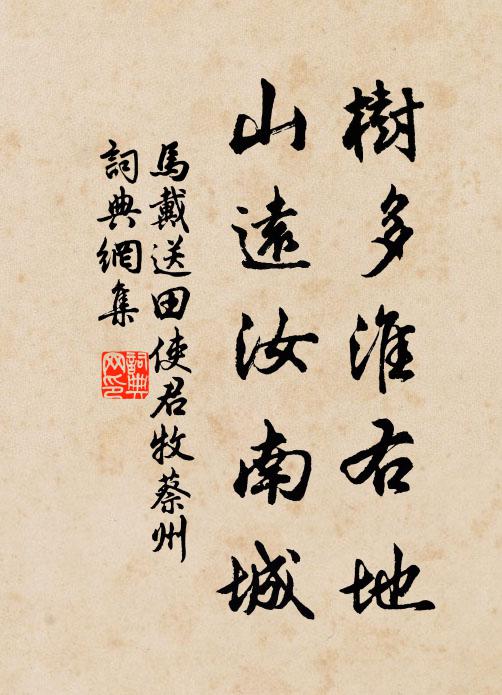 樹多淮右地
山遠汝南城
馬戴送田使君牧蔡州
詞典網集
詞典
网印